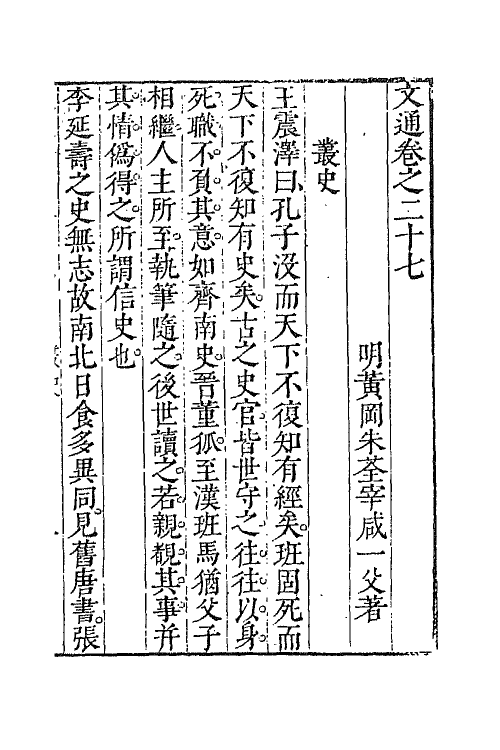 文通卷之二十七
明黃岡朱荃宰咸一父著
叢史
王震澤曰孔子沒而天下不復知有經矣。班固死而
天下不復知有史矣。古之史官。皆世守之。往往以身
死職。不負其意。如齊南史。晉董狐。至漢班馬猶父子
相繼。人主所至。執筆隨之。後世讀之。若親覩其事。并
其情僞得之。所謂信史也。
李延壽之史無志故南北日食多異同。見舊唐書。張